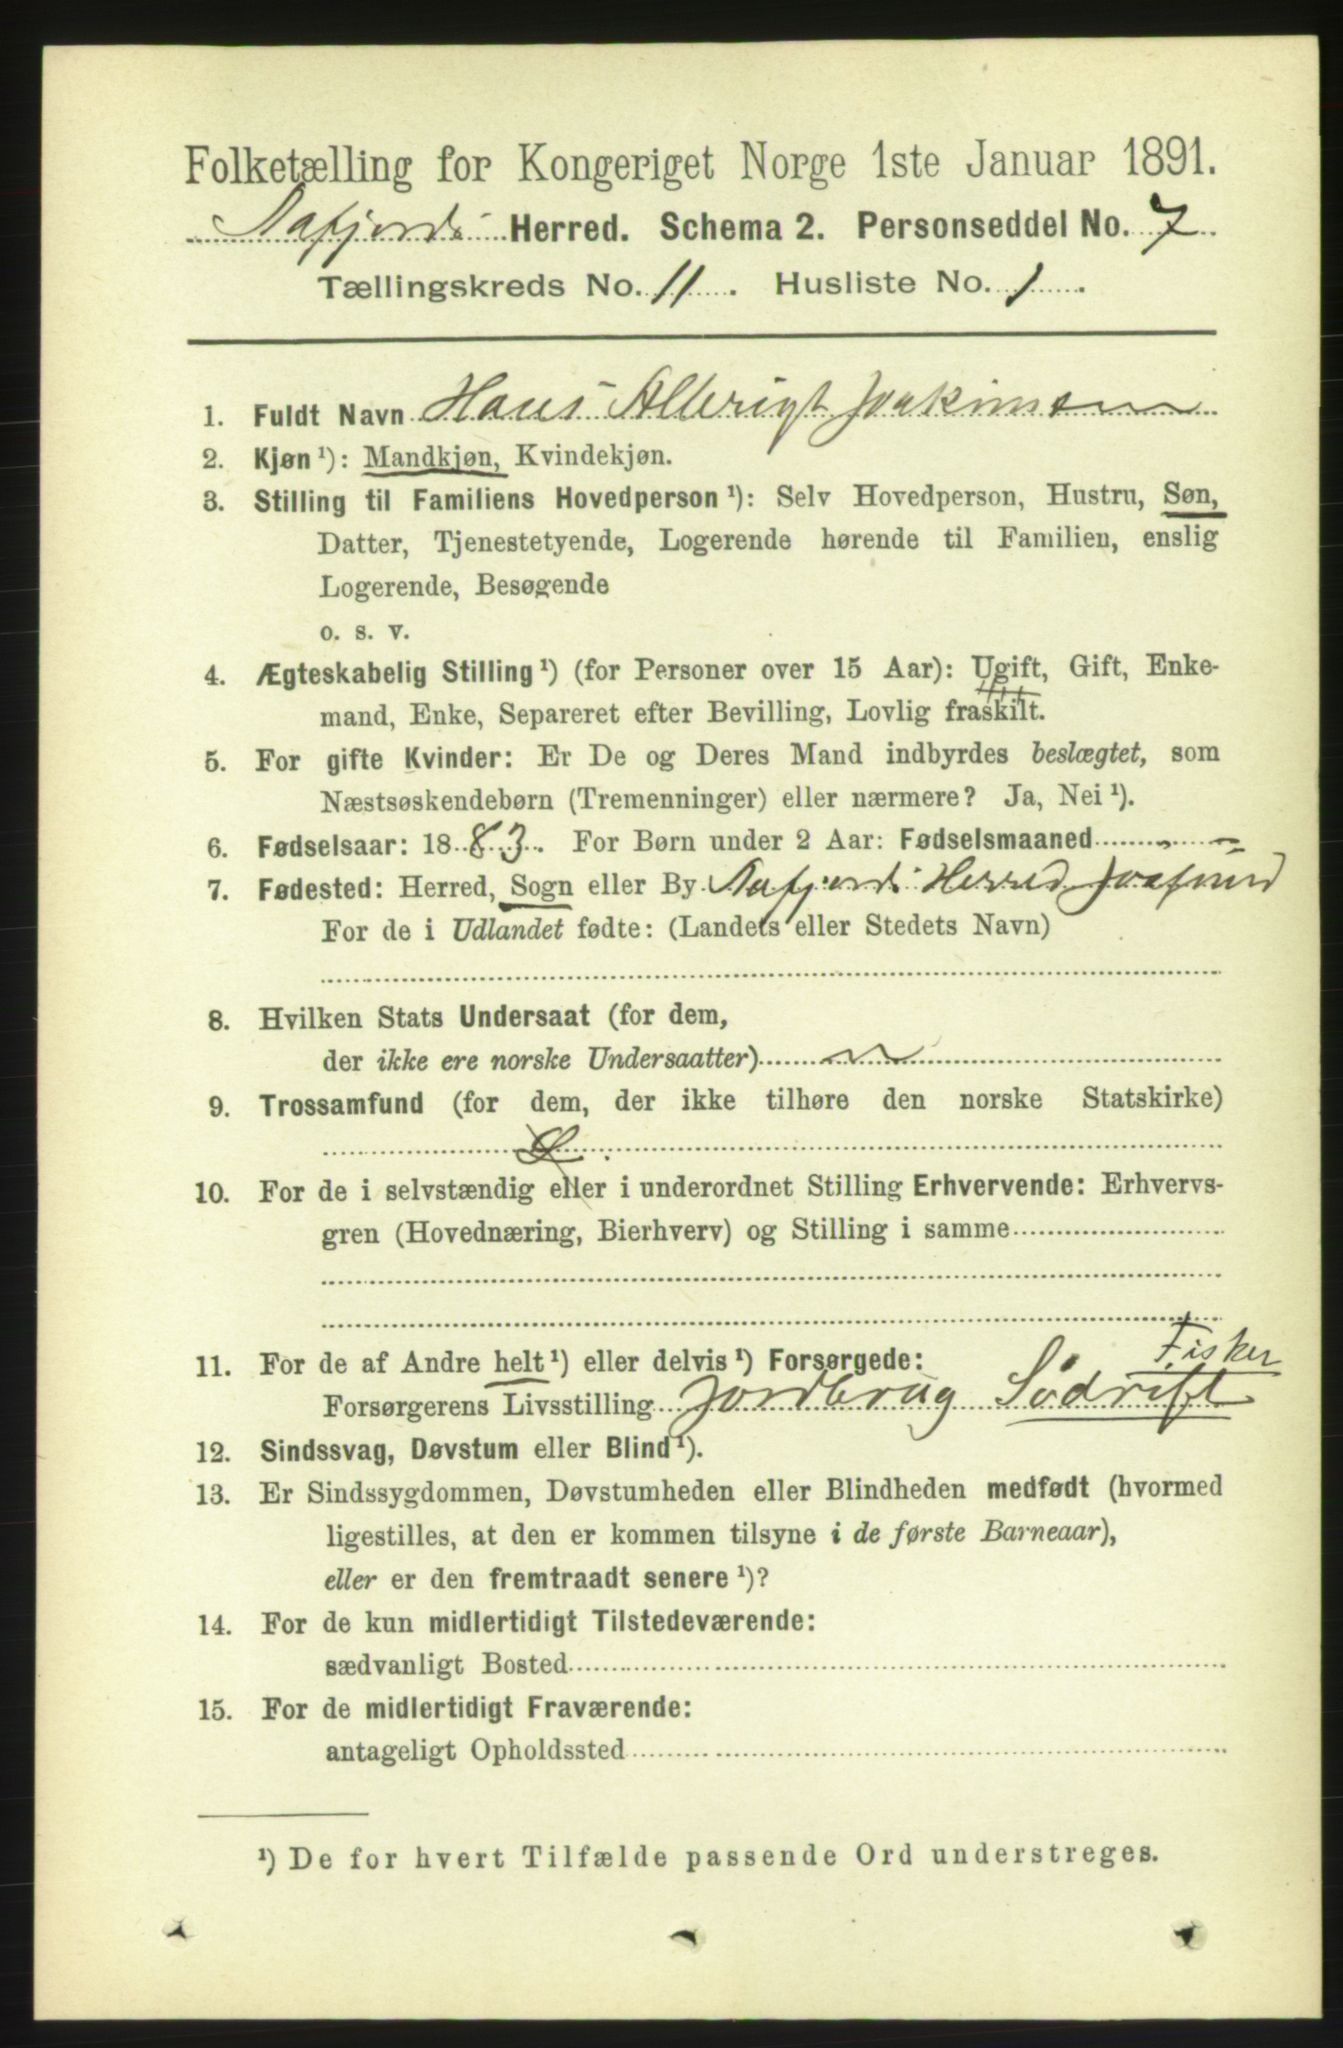 Folketælling for Kongeriget Norge 1ste Januar 1891.
Aafjords Herred. Schema 2. Personseddel No. 7
Tællingskreds No. 11. Husliste No. 1.
1. Fuldt Navn Hans Albrigt Joakimsen
2. Kjøn ¹): Mandkjøn, Kvindekjøn.
3. Stilling til Familiens Hovedperson ¹): Selv Hovedperson, Hustru, Søn,
Datter, Tjenestetyende, Logerende hørende til Familien, enslig
Logerende, Besøgende
o. s. v.
4. Ægteskabelig Stilling ¹) (for Personer over 15 Aar): Ugift, Gift, Enke-
mand, Enke, Separeret efter Bevilling, Lovlig fraskilt.
5. For gifte Kvinder: Er De og Deres Mand indbyrdes beslægtet, som
Næstsøskendebørn (Tremenninger) eller nærmere? Ja, Nei ¹).
6. Fødselsaar: 1883. For Børn under 2 Aar: Fødselsmaaned
7. Fødested: Herred, Sogn eller By Aafjords Herred
For de i Udlandet fødte: (Landets eller Stedets Navn)
8. Hvilken Stats Undersaat (for dem,
der ikke ere norske Undersaatter)
9. Trossamfund (for dem, der ikke tilhøre den norske Statskirke)
10. For de i selvstændig eller i underordnet Stilling Erhvervende: Erhvervs-
gren (Hovednæring, Bierhverv) og Stilling i samme
11. For de af Andre helt ¹) eller delvis ¹) Forsørgede: Fisker
Forsørgerens Livsstilling Jordbrug Södrift
12. Sindssvag, Døvstum eller Blind ¹).
13. Er Sindssygdommen, Døvstumheden eller Blindheden medfødt (hvormed
ligestilles, at den er kommen tilsyne i de første Barneaar),
eller er den fremtraadt senere ¹)?
14. For de kun midlertidigt Tilstedeværende:
sædvanligt Bosted
15. For de midlertidigt Fraværende:
antageligt Opholdssted
¹) De for hvert Tilfælde passende Ord understreges.